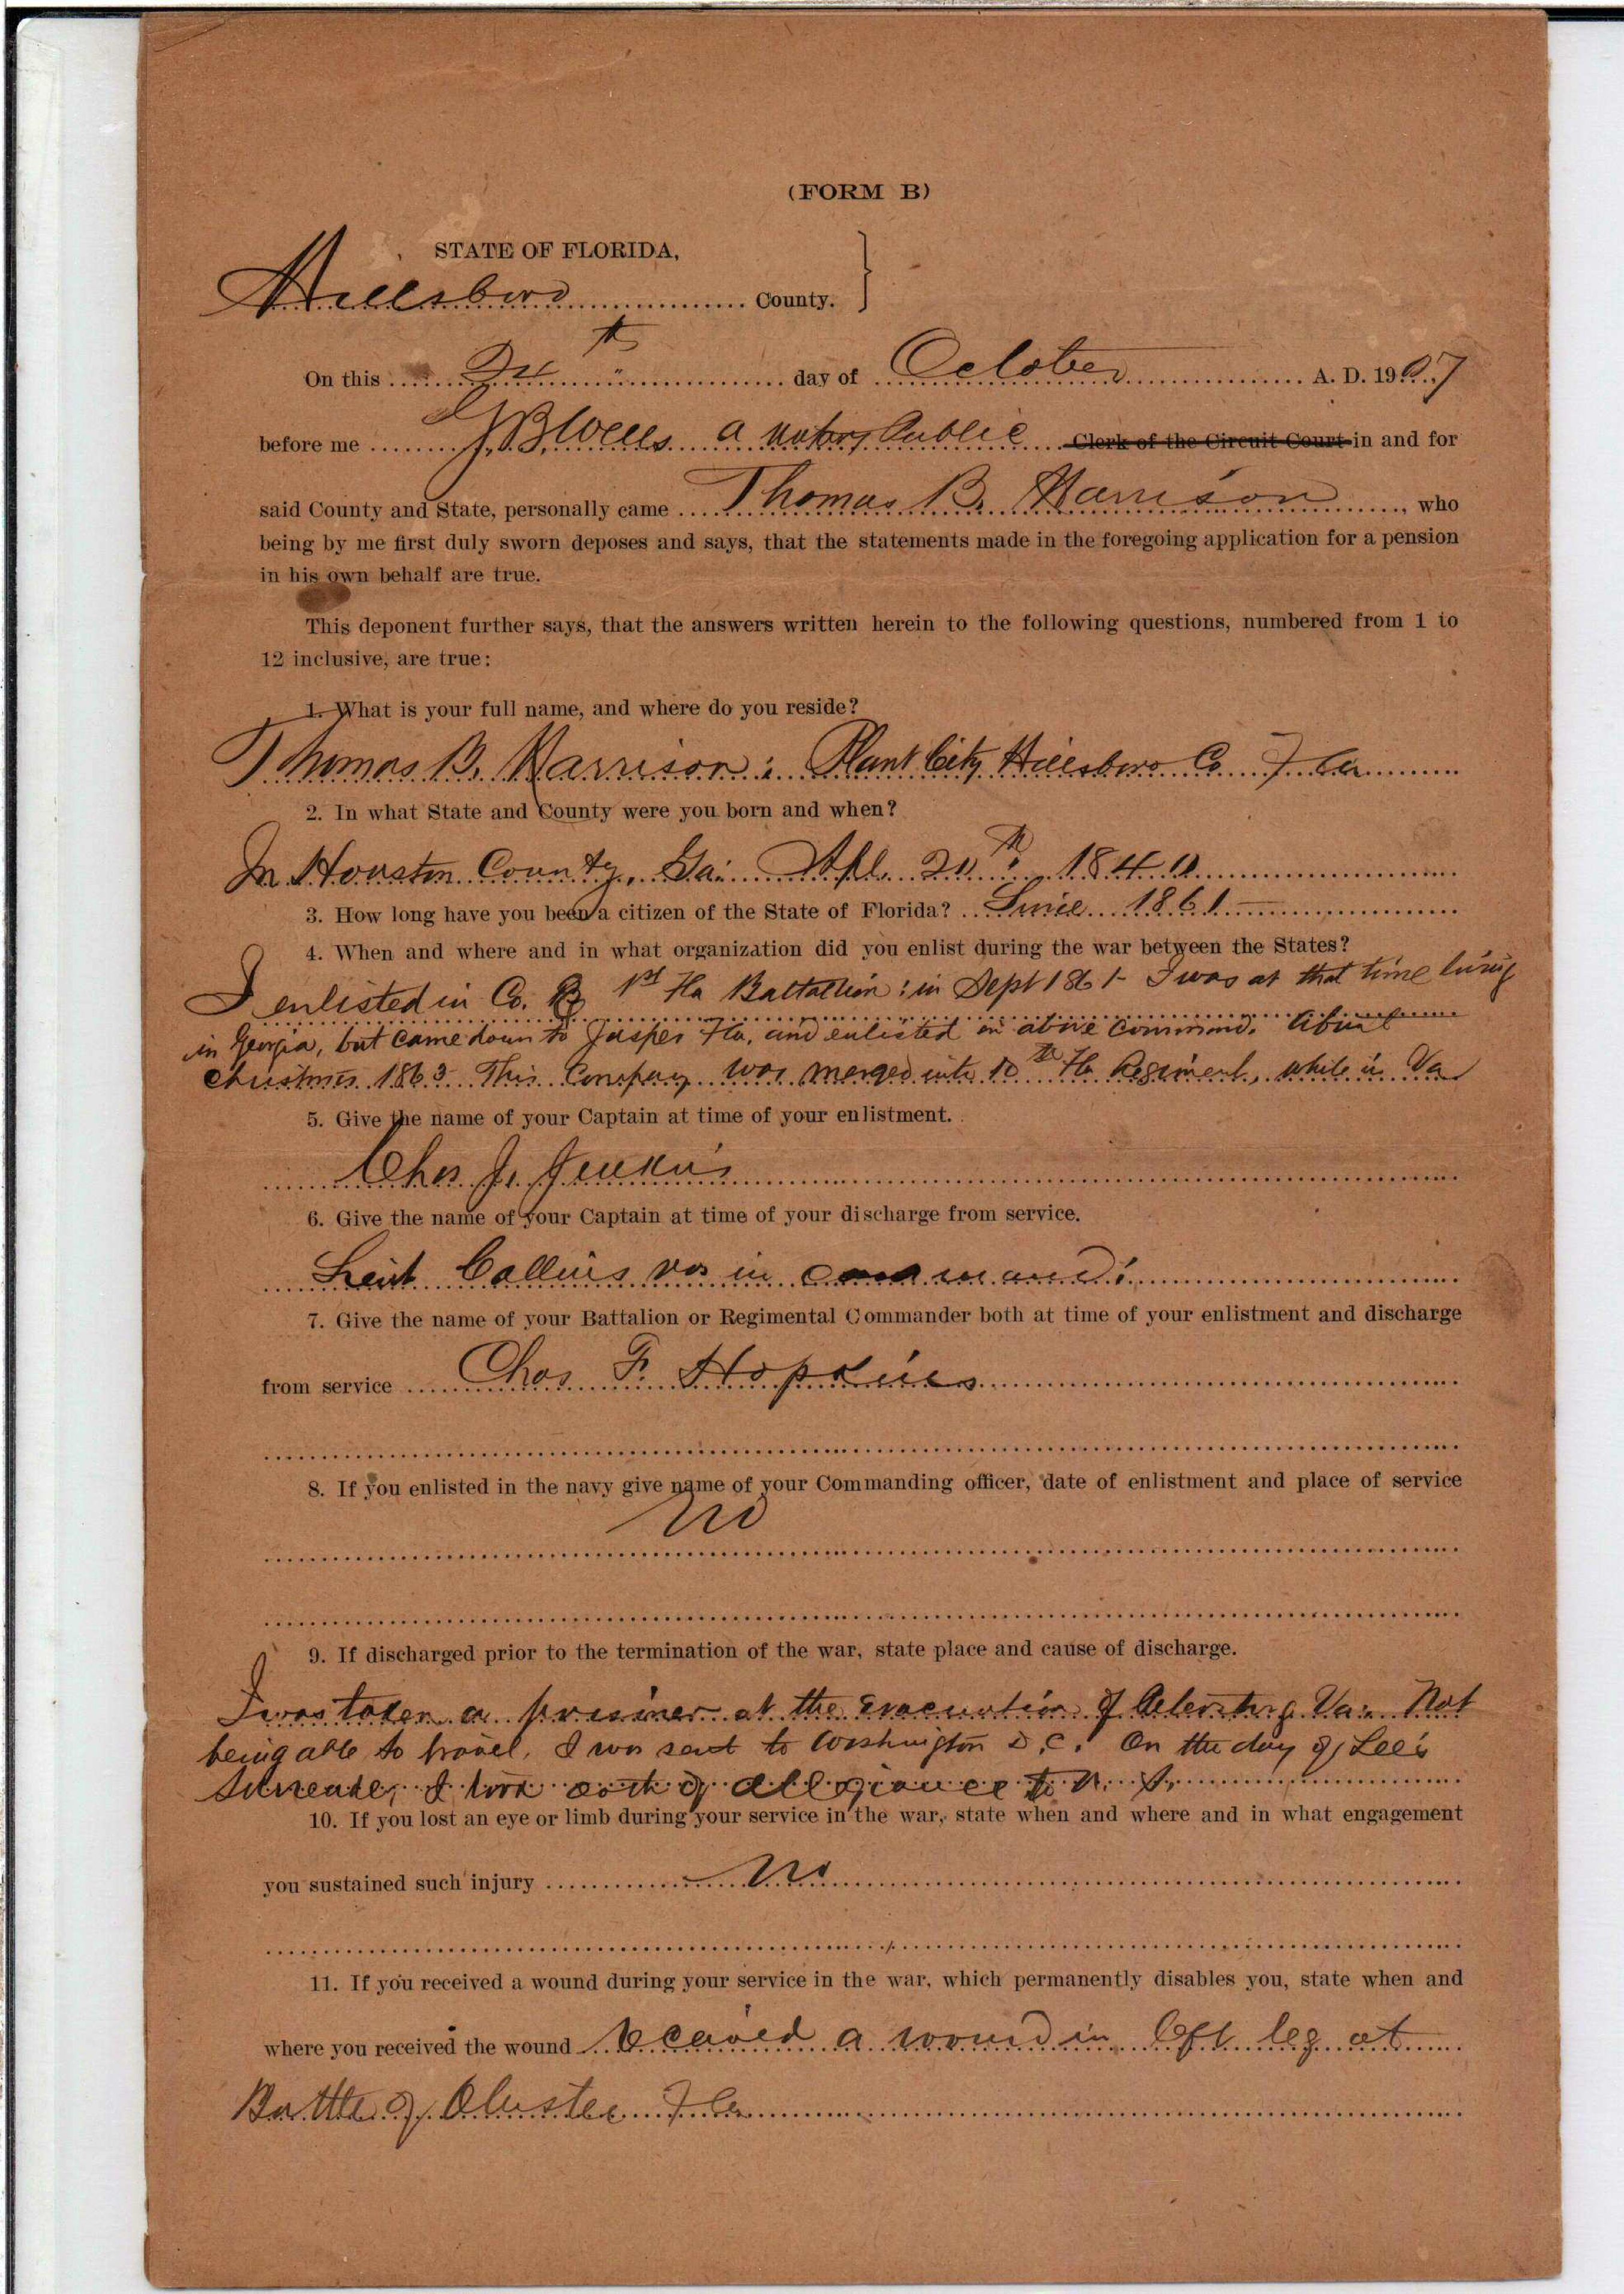 (FORM B)
STATE OF FLORIDA,
Hillsboro County.
On this th day of October A. D. 1907
before me J. B. Wells a Notary Public Clerk of the Circuit Court in and for
said County and State, personally came Thomas B. Harrison, who
being by me first duly sworn deposes and says, that the statements made in the foregoing application for a pension
in his own behalf are true.
This deponent further says, that the answers written herein to the following questions, numbered from 1 to
12 inclusive, are true:
1. What is your full name, and where do you reside?
Thomas B. Harrison: Plant City Hillsboro Co Fla
2. In what State and County were you born and when?
In Houston County, Ga: Apl. 20th 1840
3. How long have you been a citizen of the State of Florida? Since 1861
4. When and where and in what organization did you enlist during the war between the States?
I enlisted in Co. B 1st Fla Battallion: in Sept 1861- I was at that time living
in Georgia, but came down to Jasper Fla, and enlisted in above command. About
Christmas 1863 This Company was merged into 10th Fla Regiment, while in Va
5. Give the name of your Captain at time of your enlistment.
Chas J. Jenkins
6. Give the name of your Captain at time of your discharge from service.
Leiut Collins was in command:
7. Give the name of your Battalion or Regimental Commander both at time of your enlistment and discharge
from service Chas F. Hopkins
8. If you enlisted in the navy give name of your Commanding officer, date of enlistment and place of service
No
9. If discharged prior to the termination of the war, state place and cause of discharge.
I was taken a prisoner at the evacuation of Petersburg Va: Not
being able to travel, I was sent to Washington D.C. On the day of Lee's
surrender, I took oath of allegiance to U. S.
10. If you lost an eye or limb during your service in the war, state when and where and in what engagement
you sustained such injury No
11. If you received a wound during your service in the war, which permanently disables you, state when and
where you received the wound Received a wound in left leg at
Battle of Olustee Fla